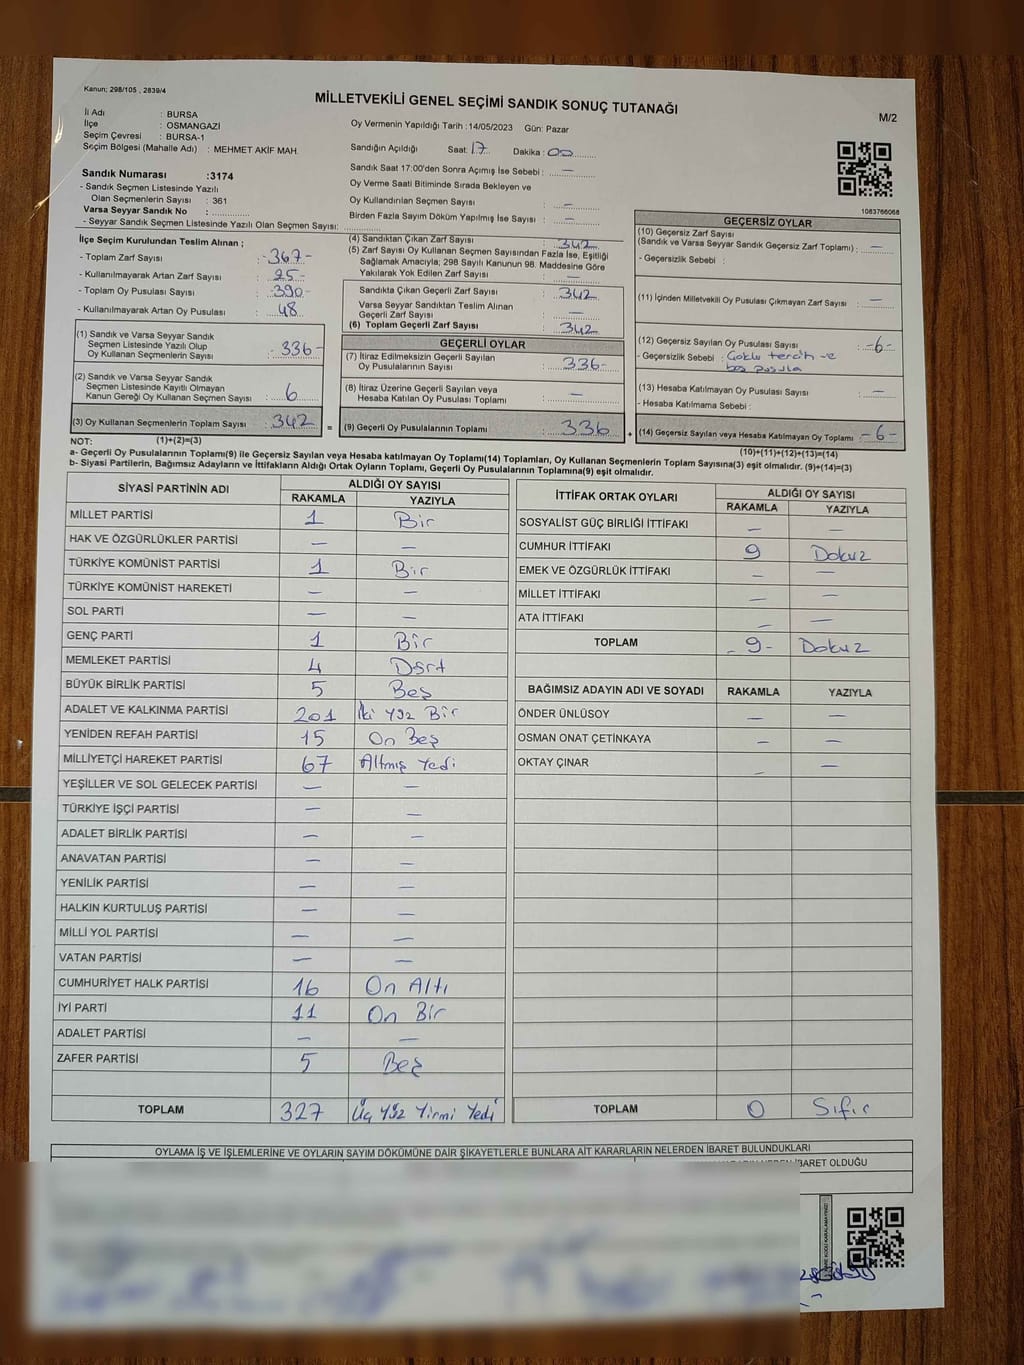 Kanun; 298/105 , 2839/4
MİLLETVEKİLİ GENEL SEÇİMİ SANDIK SONUÇ TUTANAĞI
M/2
İl Adı : BURSA
İlçe : OSMANGAZİ
Seçim Çevresi : BURSA-1
Seçim Bölgesi (Mahalle Adı) : MEHMET AKİF MAH.
Oy Vermenin Yapıldığı Tarih :14/05/2023 Gün: Pazar
Sandığın Açıldığı Saat: 17 Dakika : 00
Sandık Saat 17:00'den Sonra Açılmış İse Sebebi : —
Oy Verme Saati Bitiminde Sırada Bekleyen ve
Oy Kullandırılan Seçmen Sayısı : —
Birden Fazla Sayım Döküm Yapılmış İse Sayısı : —
Sandık Numarası :3174
- Sandık Seçmen Listesinde Yazılı
Olan Seçmenlerin Sayısı : 361
Varsa Seyyar Sandık No :
- Seyyar Sandık Seçmen Listesinde Yazılı Olan Seçmen Sayısı:
1083766068
İlçe Seçim Kurulundan Teslim Alınan ;
- Toplam Zarf Sayısı : -367-
- Kullanılmayarak Artan Zarf Sayısı : 25-
- Toplam Oy Pusulası Sayısı : -390-
- Kullanılmayarak Artan Oy Pusulası : 48
(1) Sandık ve Varsa Seyyar Sandık
Seçmen Listesinde Yazılı Olup
Oy Kullanan Seçmenlerin Sayısı : -336-
(2) Sandık ve Varsa Seyyar Sandık
Seçmen Listesinde Kayıtlı Olmayan
Kanun Gereği Oy Kullanan Seçmen Sayısı : 6
(3) Oy Kullanan Seçmenlerin Toplam Sayısı : 342 =
(4) Sandıktan Çıkan Zarf Sayısı : 342
(5) Zarf Sayısı Oy Kullanan Seçmen Sayısından Fazla İse, Eşitliği
Sağlamak Amacıyla; 298 Sayılı Kanunun 98. Maddesine Göre
Yakılarak Yok Edilen Zarf Sayısı : —
Sandıkta Çıkan Geçerli Zarf Sayısı : 342
Varsa Seyyar Sandıktan Teslim Alınan
Geçerli Zarf Sayısı : —
(6) Toplam Geçerli Zarf Sayısı : 342
GEÇERLİ OYLAR
(7) İtiraz Edilmeksizin Geçerli Sayılan
Oy Pusulalarının Toplamı : 336-
(8) İtiraz Üzerine Geçerli Sayılan veya
Hesaba Katılan Oy Pusulası Toplamı : —
(9) Geçerli Oy Pusulalarının Toplamı : 336 +
GEÇERSİZ OYLAR
(10) Geçersiz Zarf Sayısı
(Sandık ve Varsa Seyyar Sandık Geçersiz Zarf Toplamı) : —
- Geçersizlik Sebebi :
(11) İçinden Milletvekili Oy Pusulası Çıkmayan Zarf Sayısı : —
(12) Geçersiz Sayılan Oy Pusulası Sayısı : -6-
- Geçersizlik Sebebi : Çoklu tercih ve
boş pusula
(13) Hesaba Katılmayan Oy Pusulası Sayısı : —
- Hesaba Katılmama Sebebi :
(14) Geçersiz Sayılan veya Hesaba Katılmayan Oy Toplamı : -6-
NOT: (1)+(2)=(3) (10)+(11)+(12)+(13)=(14)
a- Geçerli Oy Pusulalarının Toplamı(9) ile Geçersiz Sayılan veya Hesaba katılmayan Oy Toplamı(14) Toplamları, Oy Kullanan Seçmenlerin Toplam Sayısına(3) eşit olmalıdır. (9)+(14)=(3)
b- Siyasi Partilerin, Bağımsız Adayların ve İttifakların Aldığı Ortak Oyların Toplamı, Geçerli Oy Pusulalarının Toplamına(9) eşit olmalıdır.
SİYASİ PARTİNİN ADI ALDIĞI OY SAYISI
RAKAMLA YAZIYLA
MİLLET PARTİSİ 1 Bir
HAK VE ÖZGÜRLÜKLER PARTİSİ — —
TÜRKİYE KOMÜNİST PARTİSİ 1 Bir
TÜRKİYE KOMÜNİST HAREKETİ — —
SOL PARTİ — —
GENÇ PARTİ 1 Bir
MEMLEKET PARTİSİ 4 Dört
BÜYÜK BİRLİK PARTİSİ 5 Beş
ADALET VE KALKINMA PARTİSİ 201 İki Yüz Bir
YENİDEN REFAH PARTİSİ 15 On Beş
MİLLİYETÇİ HAREKET PARTİSİ 67 Altmış Yedi
YEŞİLLER VE SOL GELECEK PARTİSİ — —
TÜRKİYE İŞÇİ PARTİSİ — —
ADALET BİRLİK PARTİSİ — —
ANAVATAN PARTİSİ — —
YENİLİK PARTİSİ — —
HALKIN KURTULUŞ PARTİSİ — —
MİLLİ YOL PARTİSİ — —
VATAN PARTİSİ — —
CUMHURİYET HALK PARTİSİ 16 On Altı
İYİ PARTİ 11 On Bir
ADALET PARTİSİ — —
ZAFER PARTİSİ 5 Beş
TOPLAM 327 Üç Yüz Yirmi Yedi
İTTİFAK ORTAK OYLARI ALDIĞI OY SAYISI
RAKAMLA YAZIYLA
SOSYALİST GÜÇ BİRLİĞİ İTTİFAKI — —
CUMHUR İTTİFAKI 9 Dokuz
EMEK VE ÖZGÜRLÜK İTTİFAKI — —
MİLLET İTTİFAKI — —
ATA İTTİFAKI — —
TOPLAM -9- Dokuz
BAĞIMSIZ ADAYIN ADI VE SOYADI RAKAMLA YAZIYLA
ÖNDER ÜNLÜSOY — —
OSMAN ONAT ÇETİNKAYA — —
OKTAY ÇINAR — —
TOPLAM 0 Sıfır
OYLAMA İŞ VE İŞLEMLERİNE VE OYLARIN SAYIM DÖKÜMÜNE DAİR ŞİKAYETLERLE BUNLARA AİT KARARLARIN NELERDEN İBARET BULUNDUKLARI
İBARET OLDUĞU